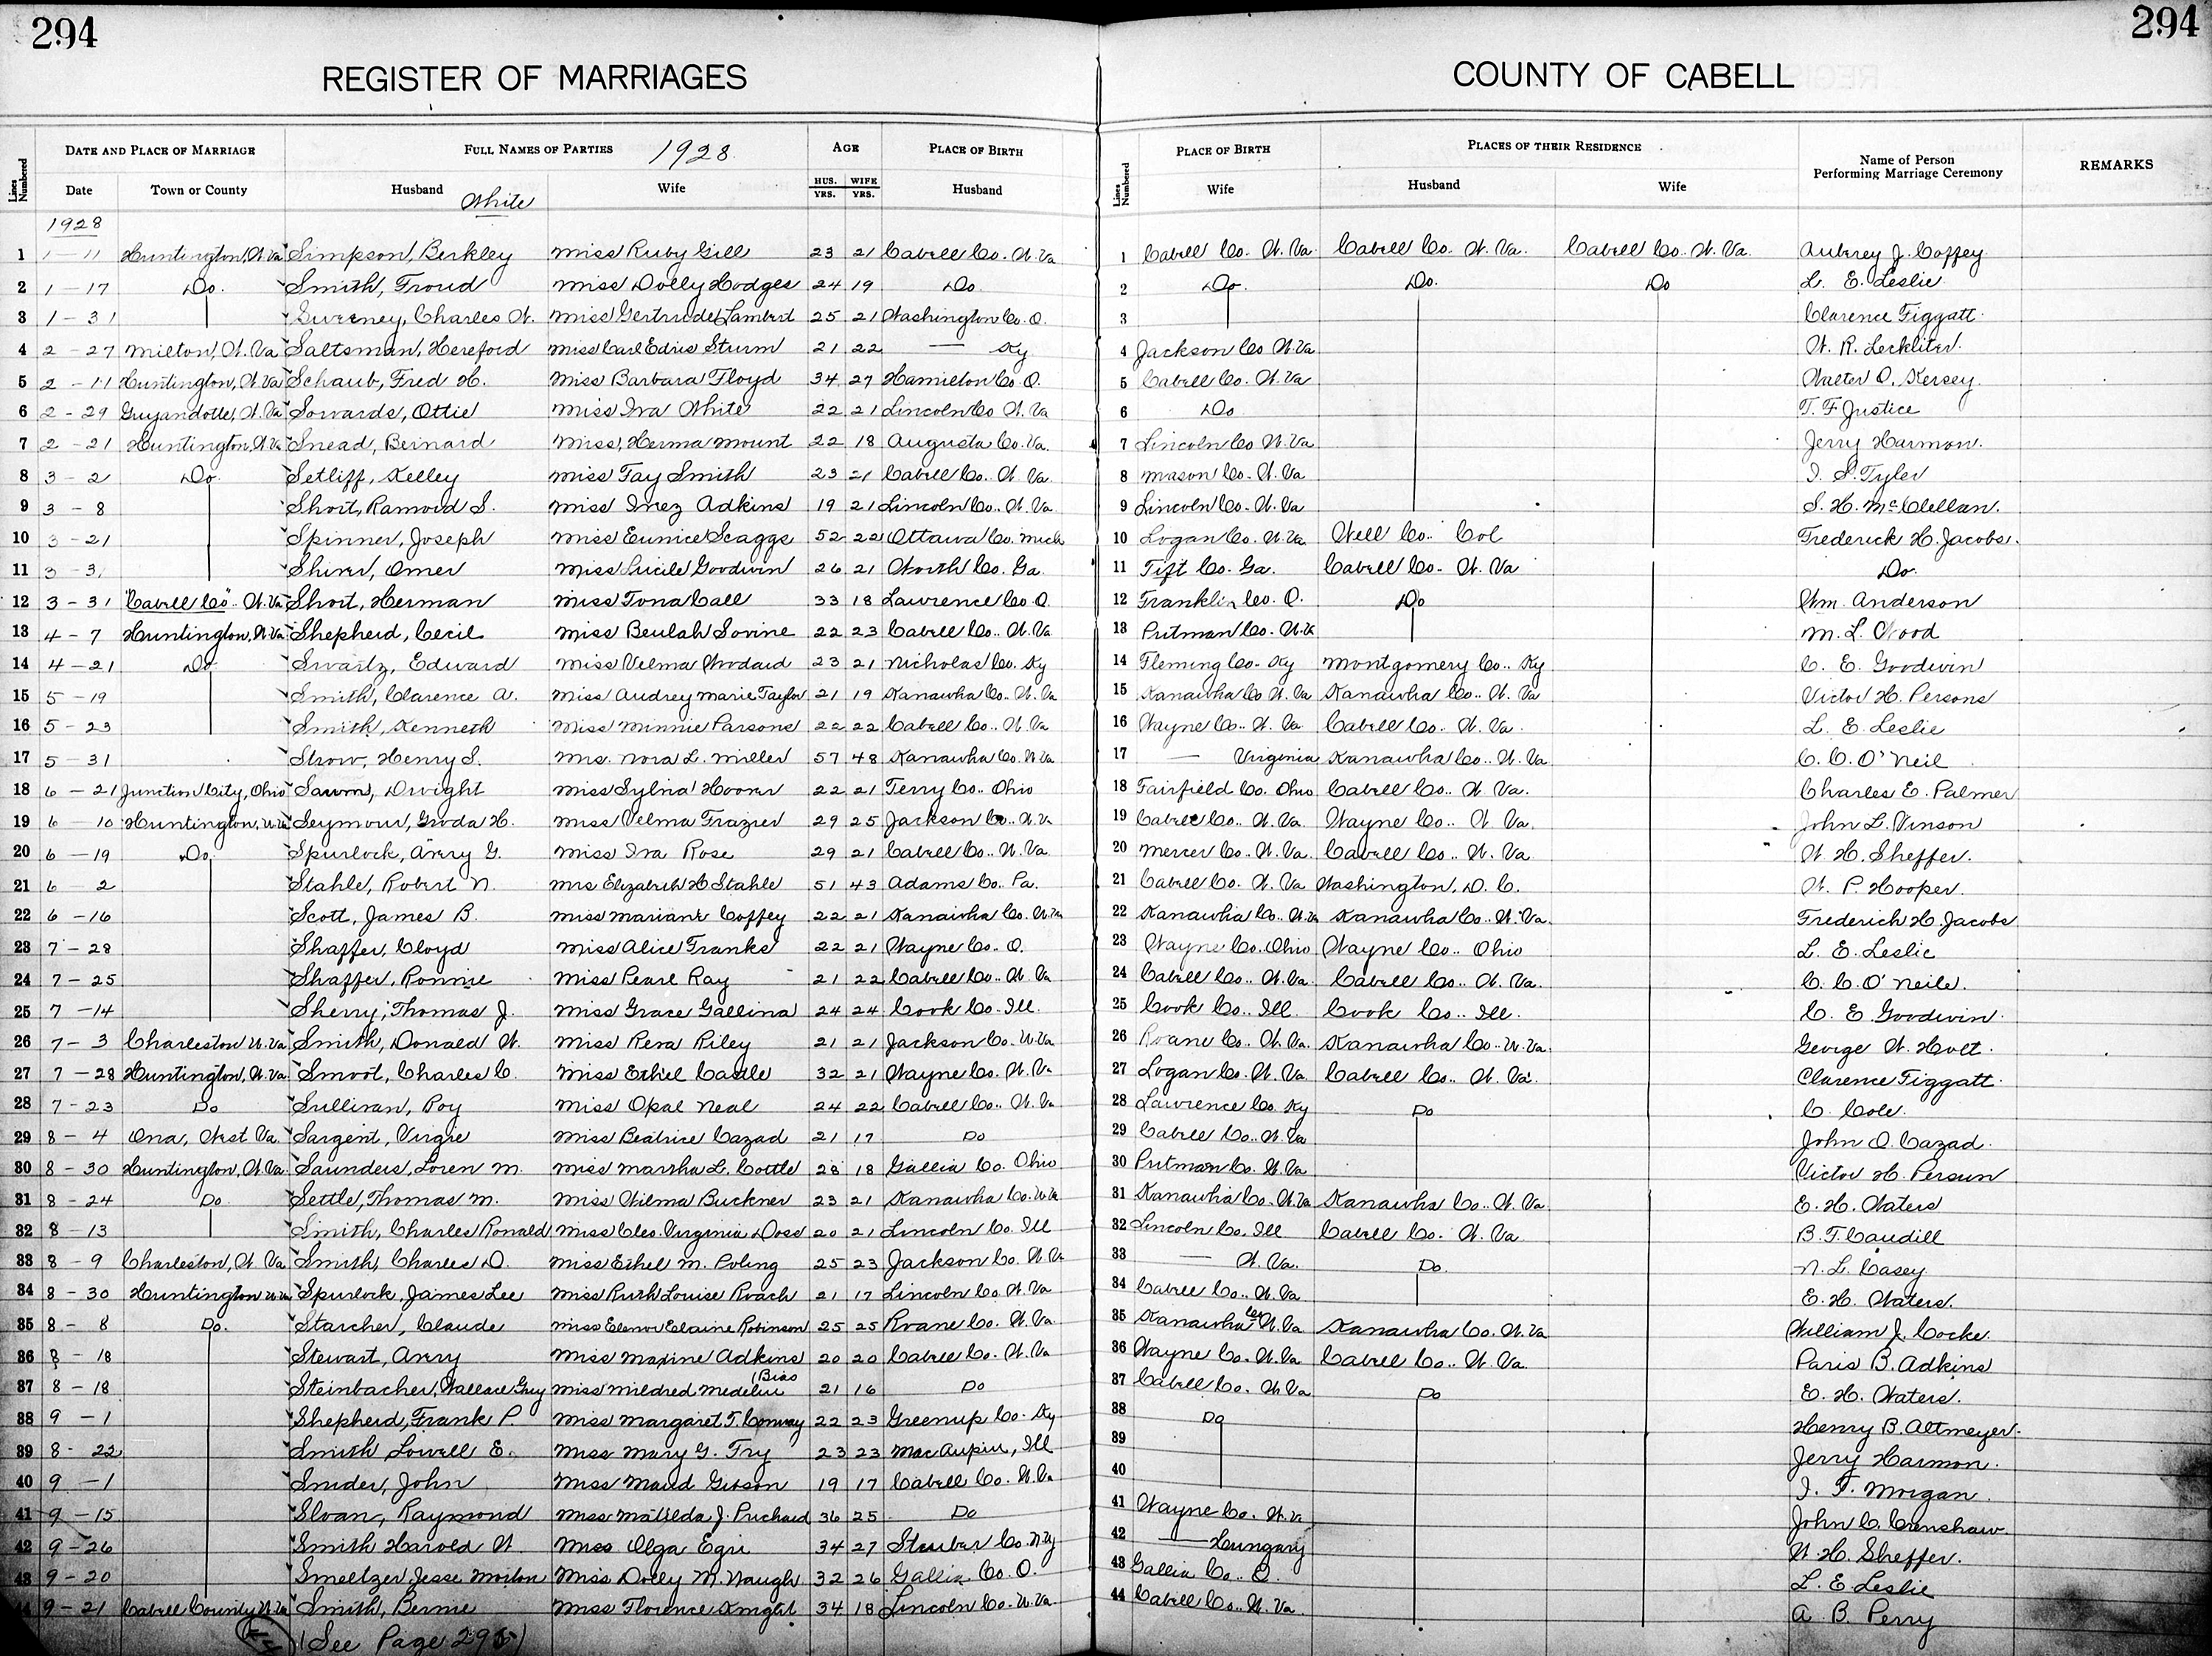 294
294
REGISTER OF MARRIAGES
COUNTY OF CABELL
Lines Numbered
DATE AND PLACE OF MARRIAGE
FULL NAMES OF PARTIES 1928
AGE
PLACE OF BIRTH
Lines Numbered
PLACE OF BIRTH
PLACES OF THEIR RESIDENCE
Name of Person
Performing Marriage Ceremony
REMARKS
Date Town or County Husband White Wife HUS. YRS. WIFE YRS. Husband Wife Husband Wife
1928
1 1-11 Huntington, W. Va Simpson, Berkley Miss Ruby Gill 23 21 Cabell Co. W. Va 1 Cabell Co. W. Va. Cabell Co. W. Va. Cabell Co. W. Va. Aubrey J. Coffey
2 1-17 Do. Smith, Froud Miss Dolly Hodges 24 19 Do. 2 Do. Do. Do L. E. Leslie
3 1-31 Sweeney, Charles W. Miss Gertrude Lambert 25 21 Washington Co. O. 3 Clarence Figgatt
4 2-27 Milton, W. Va Saltsman, Hereford Miss Carl Edris Sturm 21 22 — Ky 4 Jackson Co W. Va W. R. Leckliter
5 2-11 Huntington, W. Va Schaub, Fred H. Miss Barbara Floyd 34 27 Hamilton Co. O. 5 Cabell Co. W. Va Walter O. Kersey
6 2-29 Guyandotte, W. Va Sowards, Ottie Miss Iva White 22 21 Lincoln Co W. Va 6 Do T. F Justice
7 2-21 Huntington, W. Va Snead, Bernard Miss, Herma Mount 22 18 Augusta Co. Va. 7 Lincoln Co W. Va Jerry Harmon.
8 3-2 Do. Setliff, Kelley Miss Fay Smith 23 21 Cabell Co. W. Va. 8 Mason Co. W. Va I. S. Tyler
9 3-8 Short, Ramond S. Miss Inez Adkins 19 21 Lincoln Co. W. Va 9 Lincoln Co. W. Va S. H. McClellan.
10 3-21 Spinner, Joseph Miss Eunice Scaggs 52 22 Ottawa Co. Mich 10 Logan Co. W. Va Well Co. Col Frederick H. Jacobs.
11 3-3 Shiver, Omer Miss Lucile Goodwin 26 21 Worth Co. Ga. 11 Tift Co. Ga. Cabell Co. W. Va Do.
12 3-31 "Cabell Co". W. Va Short, Herman Miss Tona Call 33 18 Lawrence Co. O. 12 Franklin Co. O. Do Wm. Anderson
13 4-7 Huntington, W. Va Shepherd, Cecil Miss Beulah Sovine 22 23 Cabell Co. W. Va 13 Putman Co. W. Va M. L. Wood
14 4-21 Do Swartz, Edward Miss Velma Wodard 23 21 Nicholas Co. Ky 14 Fleming Co. Ky Montgomery Co. Ky C. E. Goodwin
15 5-19 Smith, Clarence A. Miss Audrey Marie Taylor 21 19 Kanawha Co. W. Va 15 Kanawha Co W. Va Kanawha Co. W. Va Victor H. Persons
16 5-23 Smith, Kenneth Miss Minnie Parsons 22 22 Cabell Co. W. Va 16 Wayne Co. W. Va Cabell Co. W. Va. L. E. Leslie
17 5-31 Strow, Henry S. Mrs. Nora L. Miller 57 48 Kanawha Co. W. Va 17 — Virginia Kanawha Co. W. Va C. C. O'Neil
18 6-21 Junction City, Ohio Saum, Dwight Miss Sylvia Hoover 22 21 Terry Co. Ohio 18 Fairfield Co. Ohio Cabell Co. W. Va. Charles E. Palmer
19 6-10 Huntington, W. Va Seymour, Groda H. Miss Velma Frazier 29 25 Jackson Co. W. Va 19 Cabell Co. W. Va. Wayne Co. W Va. John L. Vinson
20 6-19 Do. Spurlock, Avery G. Miss Iva Rose 29 21 Cabell Co. W. Va 20 Mercer Co. W. Va. Cabell Co. W. Va W. H. Sheffer.
21 6 2 Stahle, Robert N. Mrs Elizabeth H Stahle 51 43 Adams Co. Pa. 21 Cabell Co. W. Va Washington, D. C. W. P. Hooper.
22 6-16 Scott, James B. Miss Mariane Coffey 22 21 Kanawha Co. W. Va 22 Kanawha Co. W. Va Kanawha Co. W. Va. Frederich H. Jacobs
23 7-28 Shaffer, Cloyd Miss Alice Franks 22 21 Wayne Co. O. 23 Wayne Co. Ohio Wayne Co. Ohio L. E. Leslie
24 7-25 Shaffer, Ronnie Miss Pearl Ray 21 22 Cabell Co. W. Va 24 Cabell Co. W. Va Cabell Co. W. Va. C. C. O'Neile.
25 7-14 Sherry, Thomas J. Miss Grace Gallina 24 24 Cook Co. Ill. 25 Cook Co. Ill. Cook Co. Ill. C. E Goodwin.
26 7-3 Charleston W. Va Smith, Donald W. Miss Rera Riley 21 21 Jackson Co. W. Va 26 Roane Co. W. Va. Kanawha Co. W. Va. George W. Holt.
27 7-28 Huntington, W. Va Smoot, Charles C. Miss Ethel Castle 32 21 Wayne Co. W. Va 27 Logan Co. W. Va Cabell Co. W. Va. Clarence Figgatt.
28 7-23 Do Sullivan, Roy Miss Opal Neal 24 22 Cabell Co. W. Va 28 Lawrence Co. Ky Do C. Cole.
29 8-4 Ona, West Va. Sargent, Virgie Miss Beatrice Cazad 21 17 Do 29 Cabell Co. W. Va John O. Cazad.
30 8-30 Huntington, W. Va. Saunders, Loren M. Miss Martha L. Cottle 28 18 Gallia Co. Ohio 30 Putman Co. W. Va Victor H. Persun
31 8-24 Do. Settle, Thomas M. Miss Wilma Buckner 23 21 Kanawha Co. W. Va 31 Kanawha Co. W. Va Kanawha Co. W. Va E. H. Waters
32 8-13 Smith, Charles Ronald Miss Cleo. Virginia Doss 20 21 Lincoln Co. Ill 32 Lincoln Co. Ill Cabell Co. W. Va B. T. Caudill
33 8-9 Charleston, W. Va Smith, Charles D. Miss Ethel M. Poling 25 23 Jackson Co. W. Va 33 — W. Va. Do. N. L. Casey
34 8-30 Huntington W. Va Spurlock, James Lee Miss Ruth Louise Roach 21 17 Lincoln Co. W. Va 34 Cabell Co. W. Va E. H. Waters.
35 8-8 Do. Starcher, Claude Miss Elenor Elaine Robinson 25 25 Roane Co. W. Va. 35 Kanawha Co. W. Va Kanawha Co. W. Va William J. Cocke.
36 8-18 Stewart, Avery Miss Maxine Adkins 20 20 Cabell Co. W. Va 36 Wayne Co. W. Va Cabell Co. W. Va Paris B. Adkins
37 8-18 Steinbacher, Wallace Guy Miss Mildred Medeline (Bias 21 16 Do 37 Cabell Co. W. Va Do E. H. Waters.
38 9-1 Shepherd, Frank P. Miss Margaret T. Conway 22 23 Greenup Co. Ky 38 Do Henry B. Altmeyer.
39 8-22 Smith Lowell E. Miss Mary G. Fry 23 23 MacAupin, Ill 39 Jerry Harmon.
40 9-1 Snider, John Miss Maud Gibson 19 17 Cabell Co. W. Va 40 I. F. Morgan
41 9-15 Sloan, Raymond Miss Matilda J. Prichard 36 25 Do 41 Wayne Co. W. Va John C. Crenshaw.
42 9-26 Smith Harold W. Miss Olga Egri 34 27 Steuber Co. N.Y 42 — Hungary W. H. Sheffer.
43 9-20 Smeltzer Jesse Morton Miss Dolly M. Waugh 32 26 Gallia Co. O. 43 Gallia Co. O. L. E Leslie
44 9-21 Cabell County W. Va Smith, Bernie Miss Florence Knight 34 18 Lincoln Co. W. Va. 44 Cabell Co. W. Va. A B. Perry
(See Page 295)